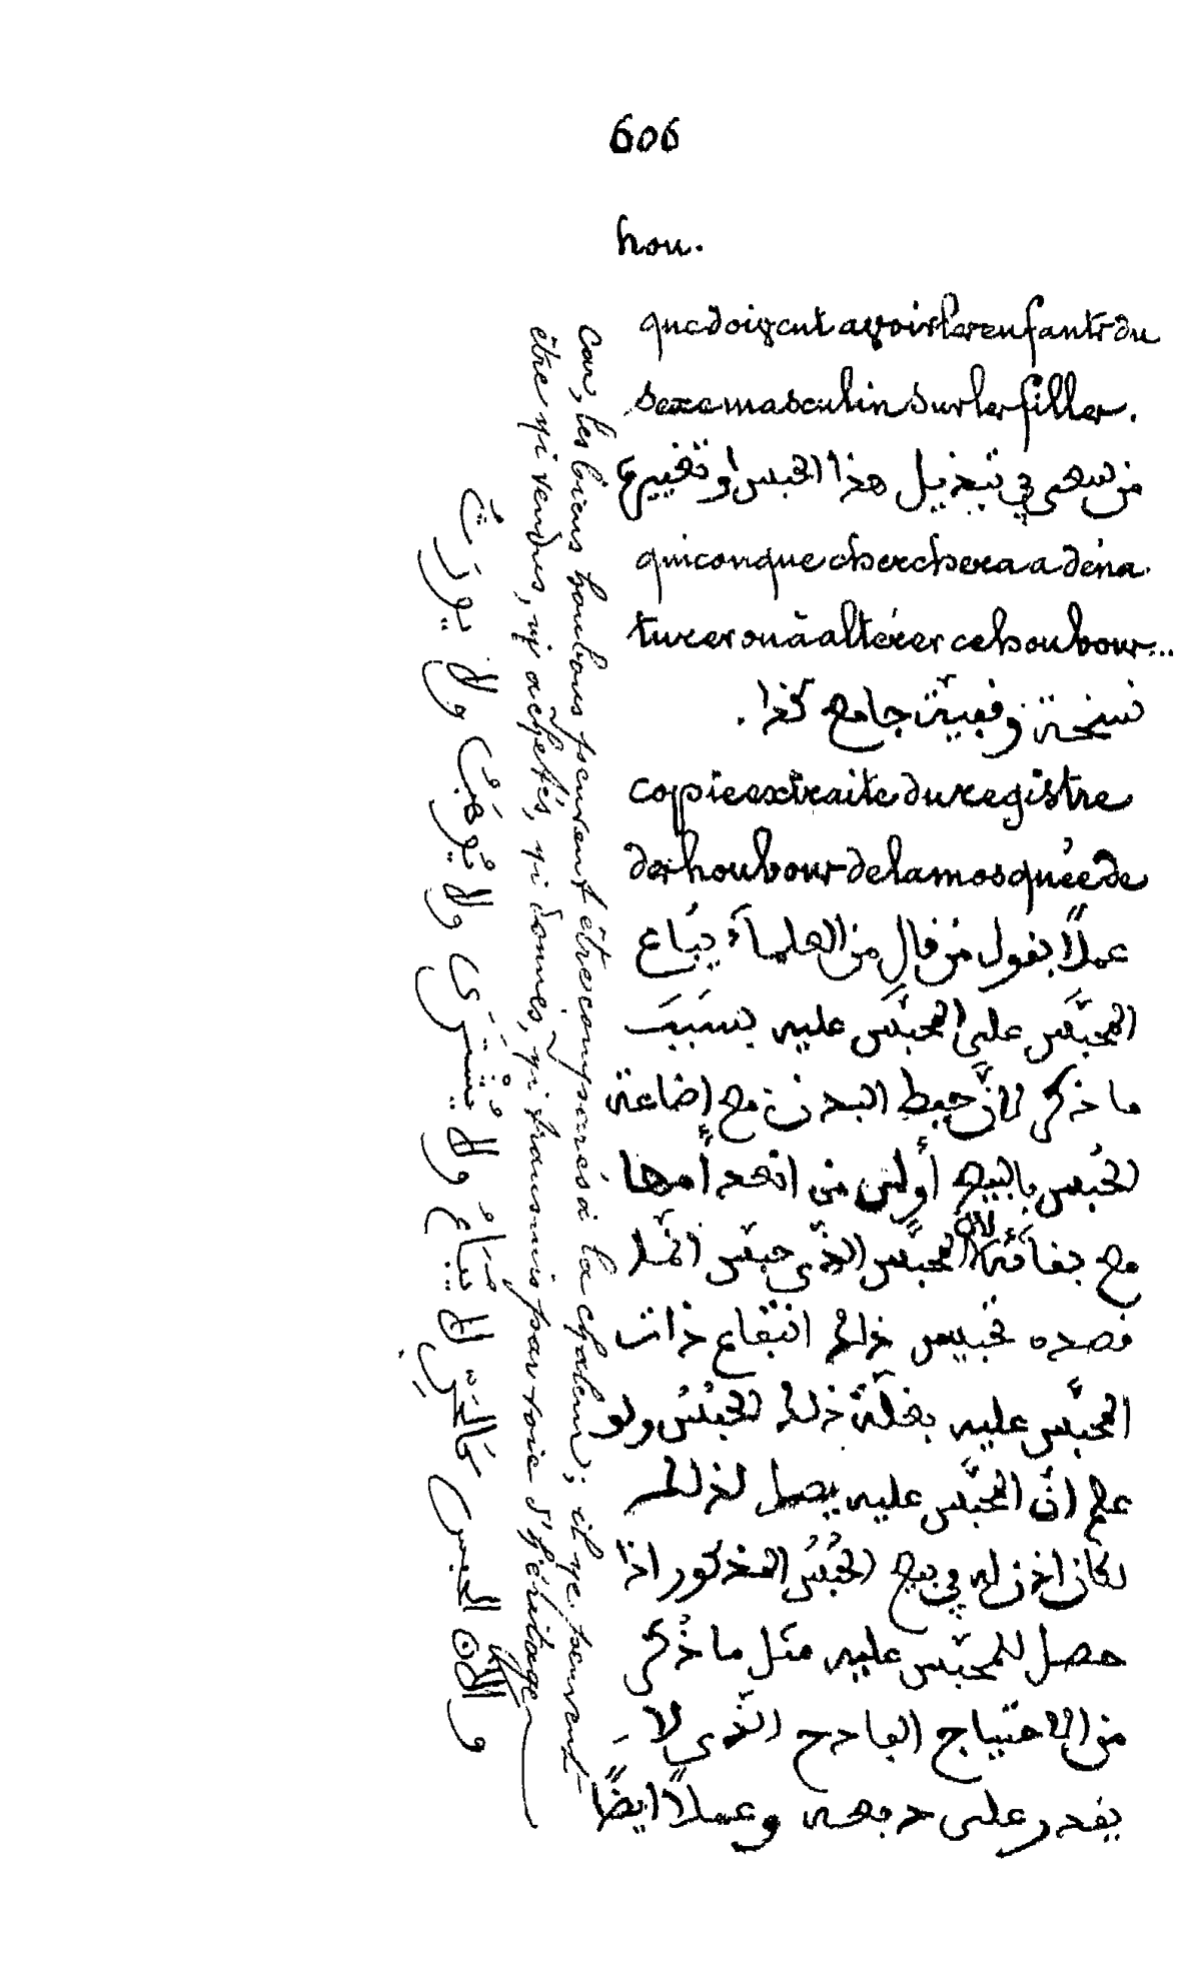 606
hou.
que doivent avoir les enfants du
sexe masculin sur les filles.
من سعى في تبذيل هذا الحبس او تغييرها
quiconque cherchera a déna-
turer ou à altérer ce houbous...
نسخة وقفية جامع كذا.
copie extraite du registre
des houbous de la mosquée de
عملاً بقول من قال من العلماء يباع
المحبَّس على المحبَّس عليه بسبب
ما ذكر لانّ حفظ البدن مع إضاعة
الحُبس بالبيع أولى من انعدامها
مع بقائه لانّ المحبِّس الذي حبّس انّما
قصده تحبيس ذلك انتفاع ذات
المحبَّس عليه بغلّة ذلك الحُبُس ولو
علم انّ المحبَّس عليه يصل لذلك
لكان اذن له في بيع الحُبُس المذكور اذا
حصل للمحبّس عليه مثل ما ذُكر
من الاحتياج الفادح الذي لا
يقدر على دفعه وعملاً ايضًا
car, les biens houbous peuvent être comparés à la chaleur; il ne peuvent
être ni vendus, ni achetés, ni donnés, ni transmis par voie d'héritage
والآن الحبس كالحرّ لا يُباع ولا يُشترى ولا يُوهَب ولا يورَث